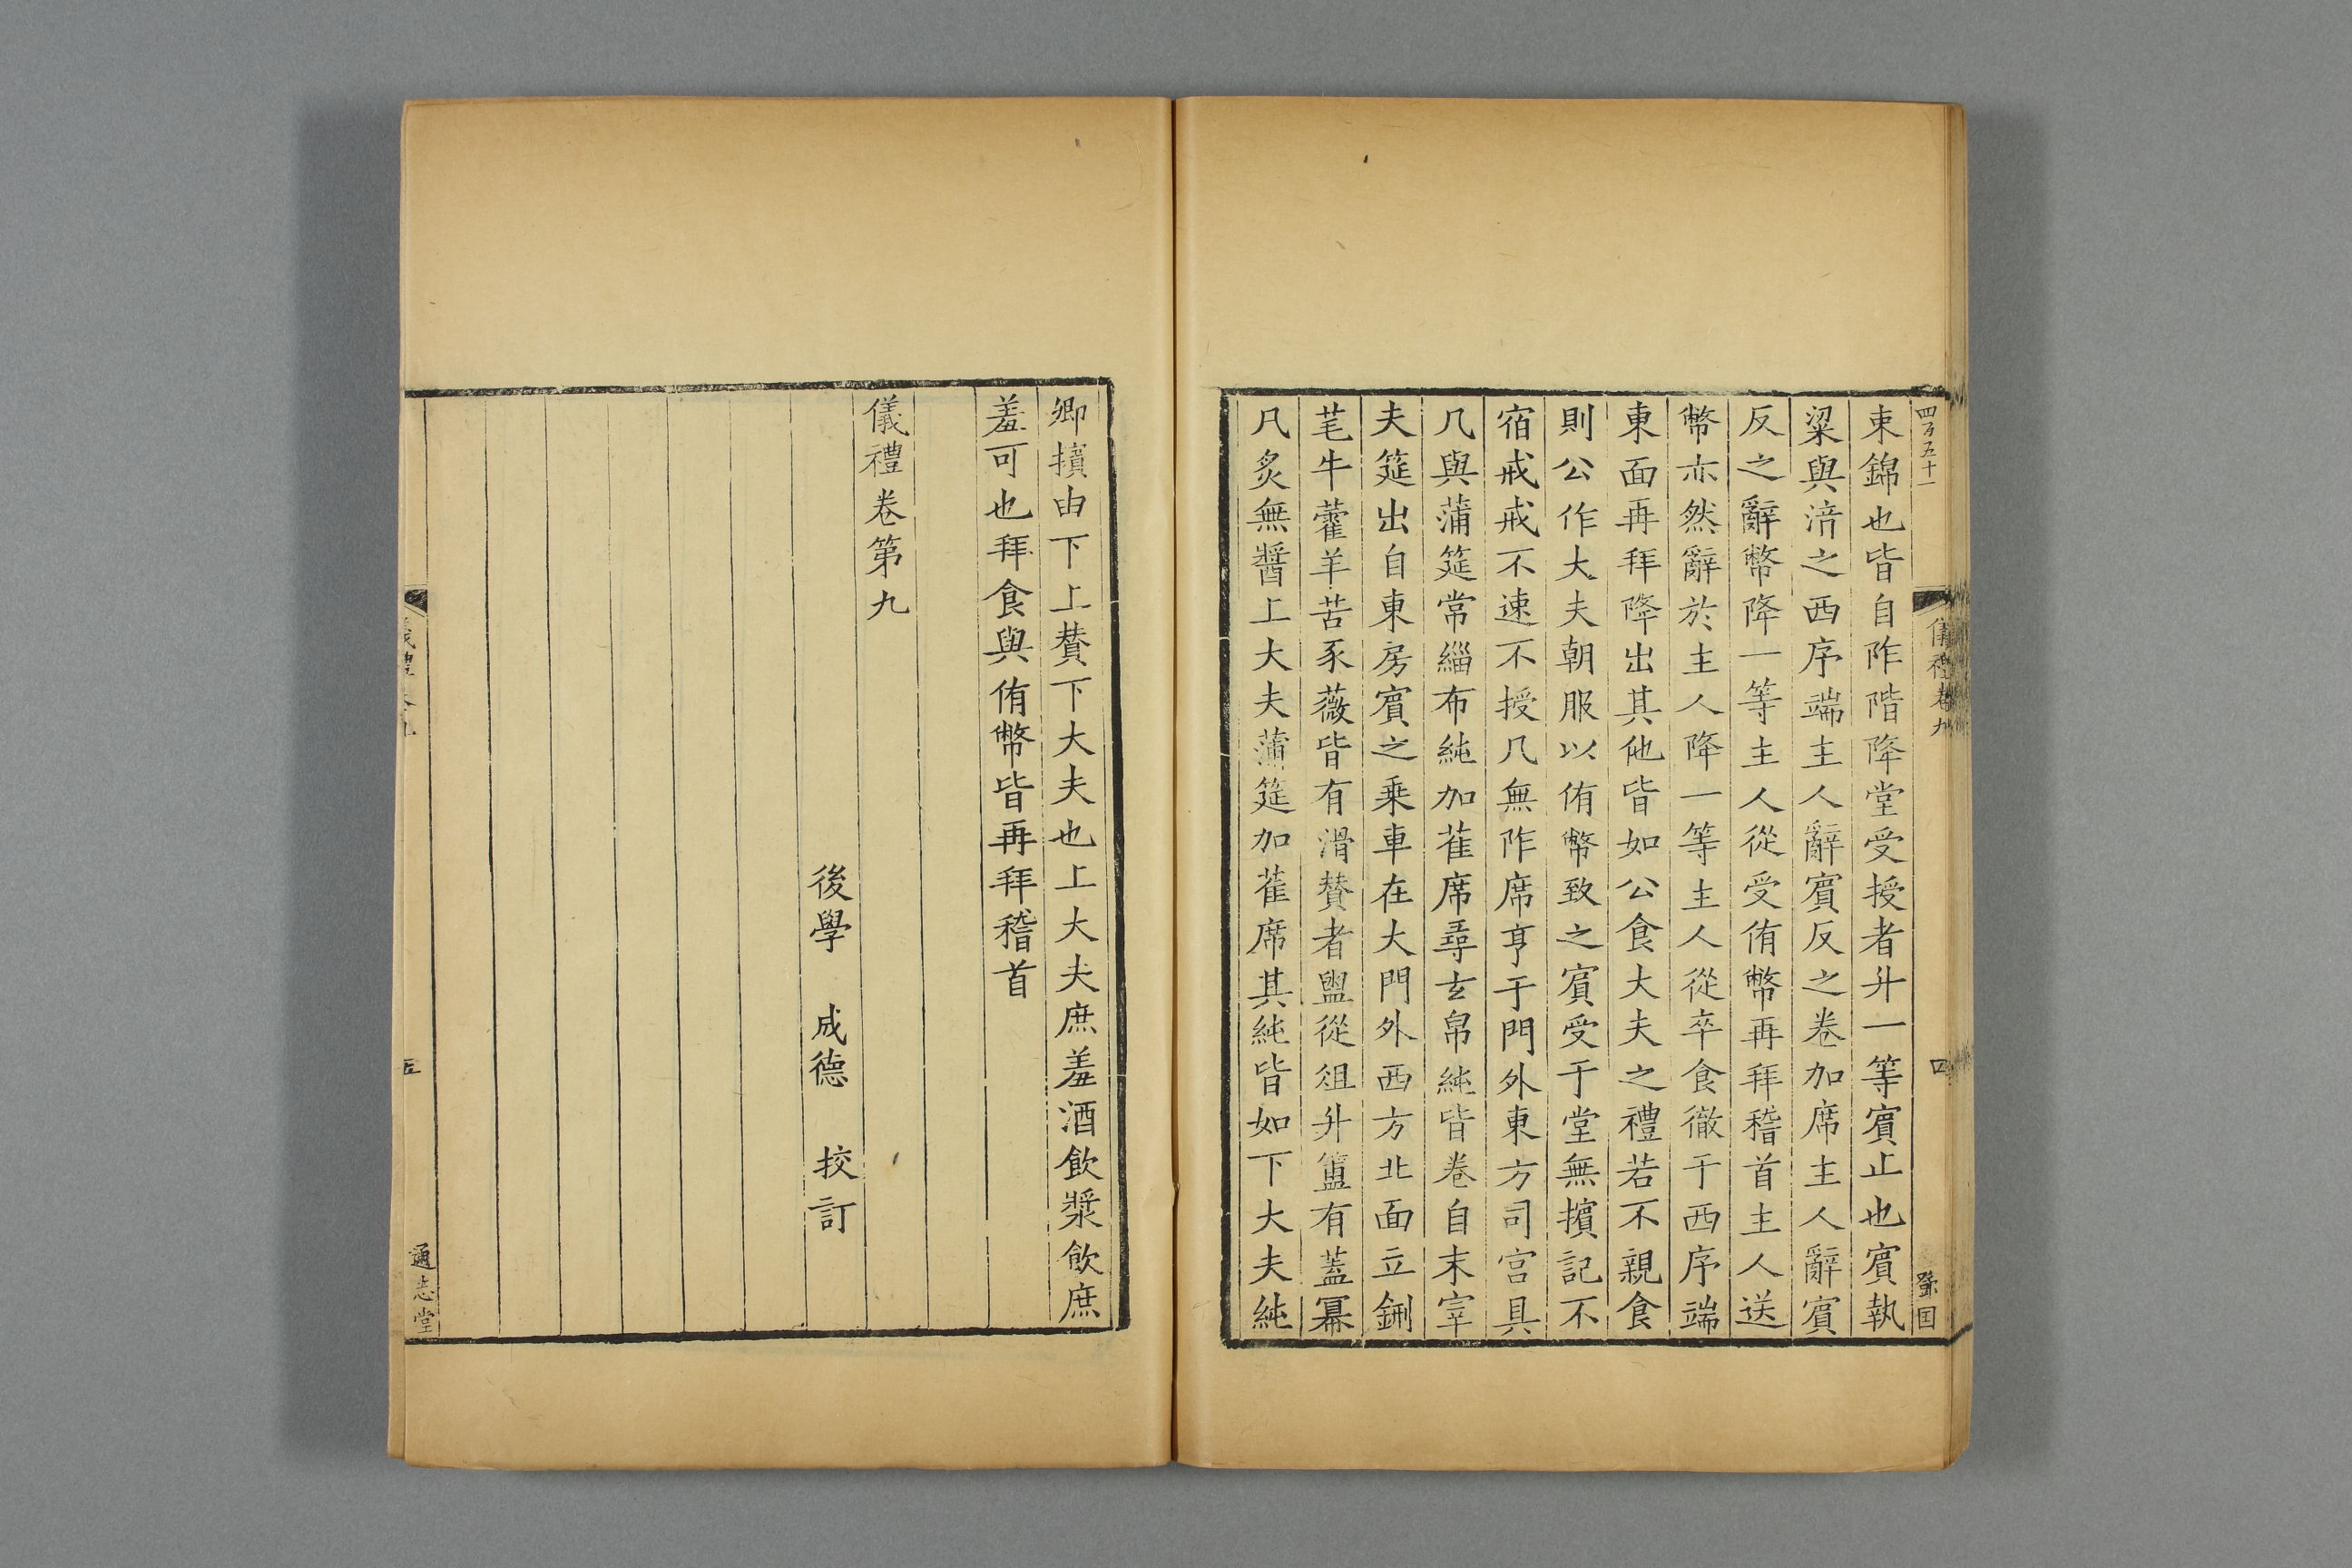 四百五十一
儀禮卷九
四
束錦也皆自阼階降堂受授者升一等賓止也賓執
粱與湆之西序端主人辭賓反之卷加席主人辭賓
反之辭幣降一等主人從受侑幣再拜稽首主人送
幣亦然辭於主人降一等主人從卒食徹于西序端
東面再拜降出其他皆如公食大夫之禮若不親食
則公作大夫朝服以侑幣致之賓受于堂無擯記不
宿戒戒不速不授几無阼席亨于門外東方司宮具
几與蒲筵常緇布純加萑席尋玄帛純皆卷自末宰
夫筵出自東房賓之乘車在大門外西方北面立鉶
芼牛藿羊苦豕薇皆有滑贊者盥從俎升簠有蓋冪
凡炙無醬上大夫蒲筵加萑席其純皆如下大夫純
卿擯由下上贊下大夫也上大夫庶羞酒飲漿飲庶
羞可也拜食與侑幣皆再拜稽首
儀禮卷第九
後學 成德 挍訂
五
通志堂